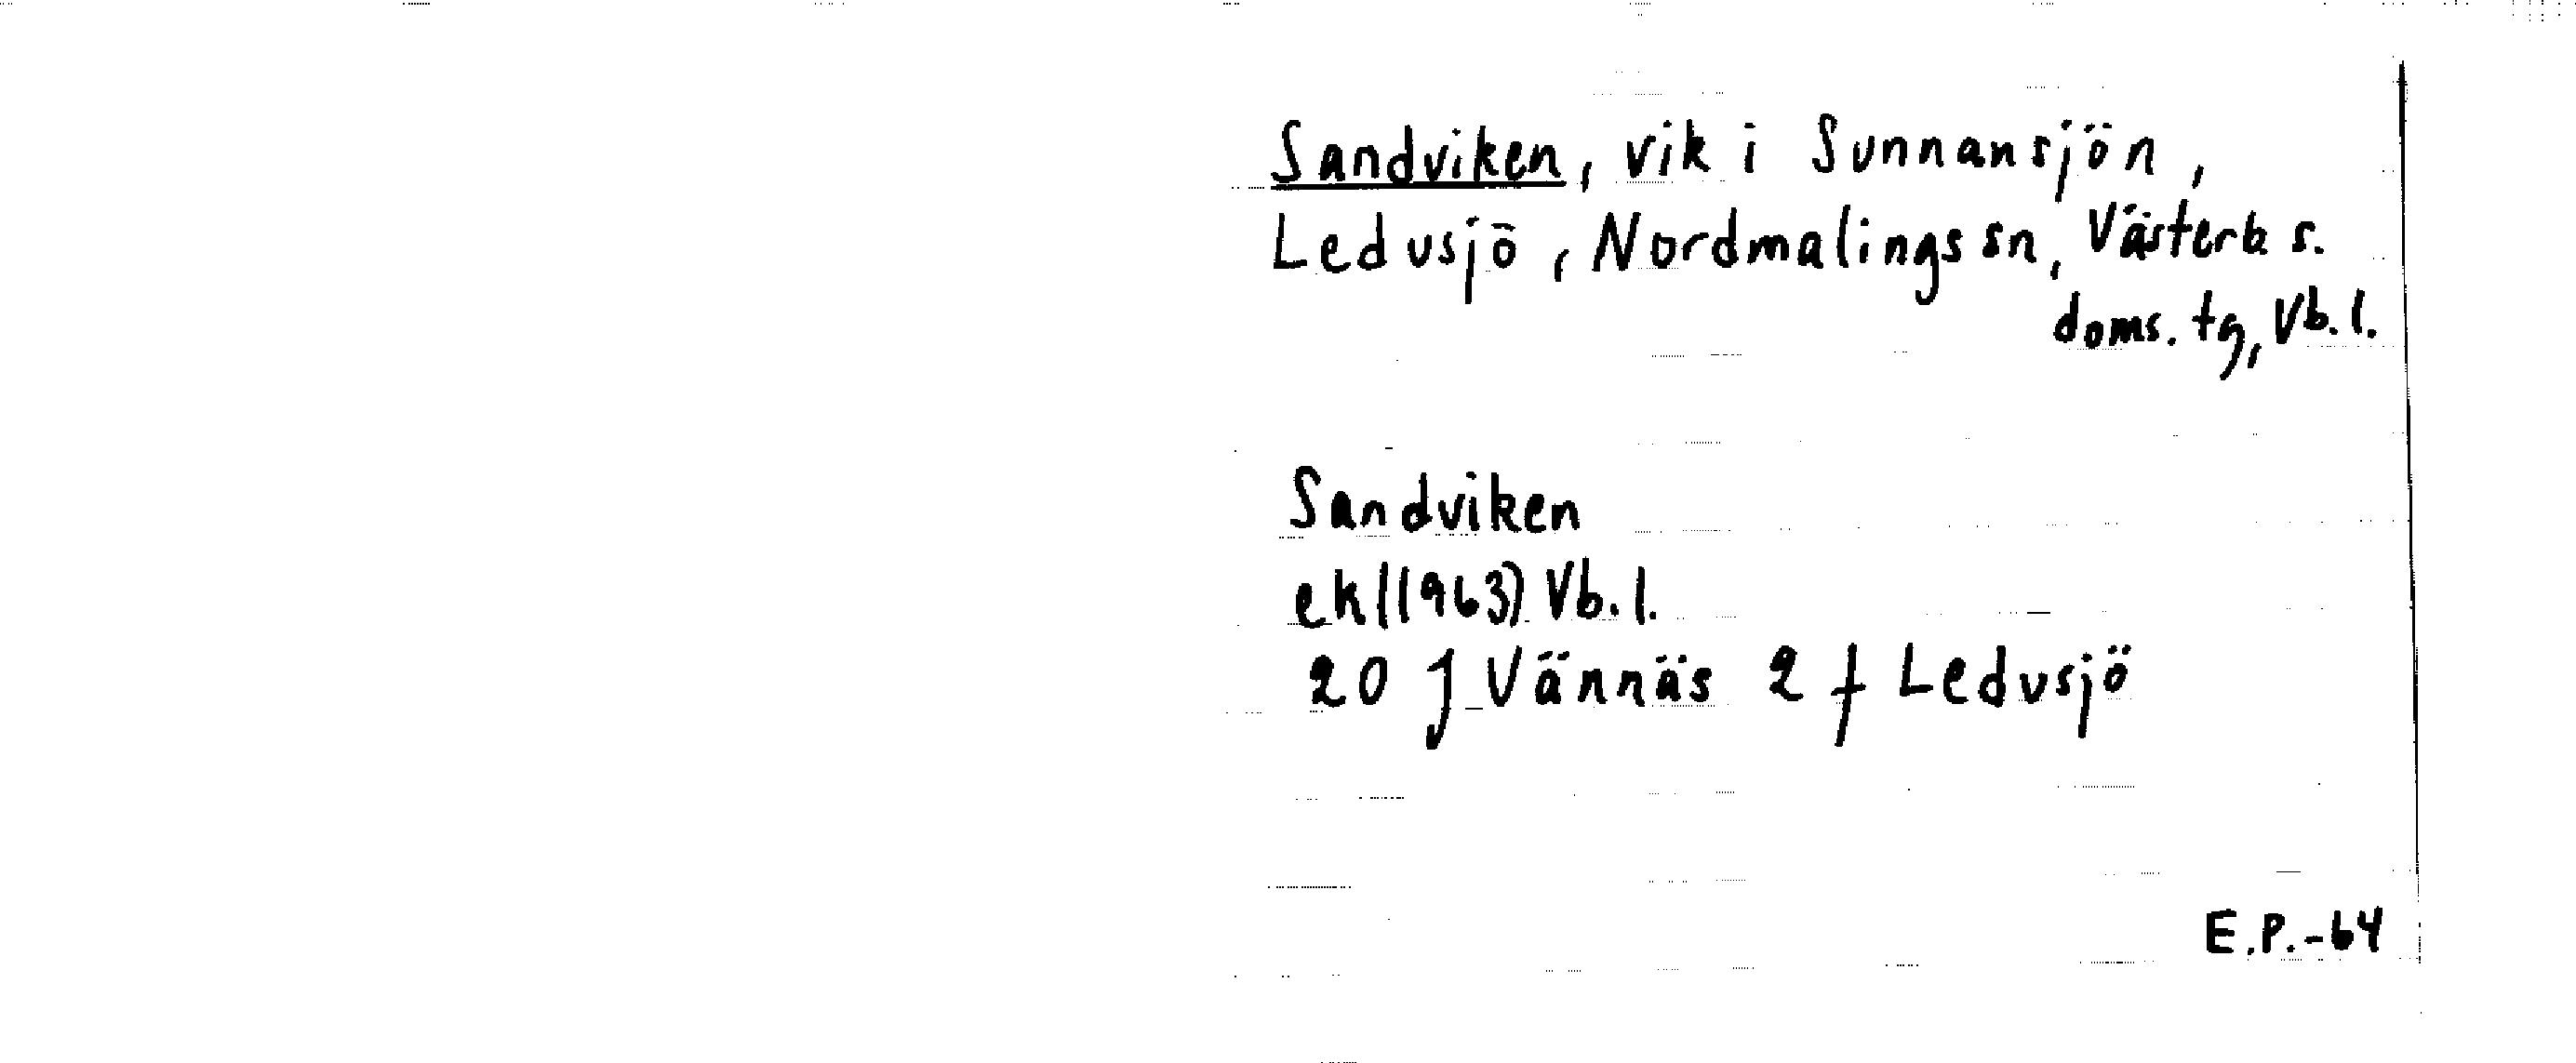 Sandviken, vik i Sunnansjön,
Ledusjö, Nordmalings sn, Västerb. s.
doms. tg, Vb. l.
Sandviken
ek (1963) Vb. l.
20 J Vännäs 2 f Ledusjö
E.P.-64